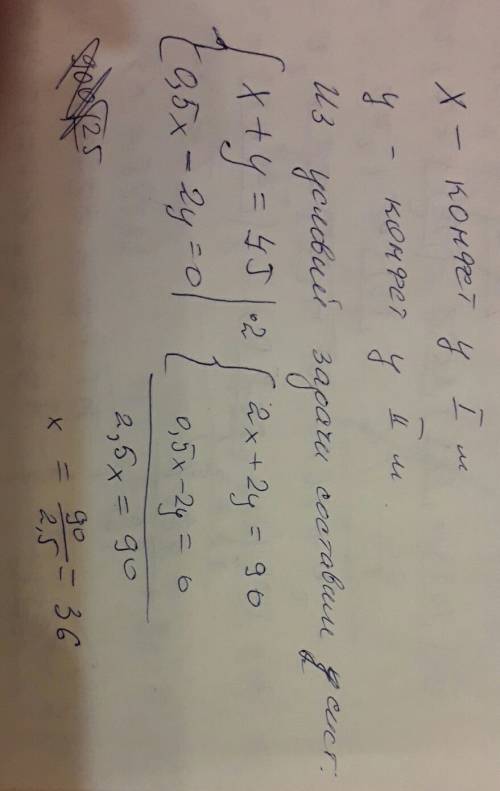 X – конфет у I м
y – конфет у II м
Из условий задачи составим сист.
{ x + y = 45 | ·2 { 2x + 2y = 90
{ 0,5x – 2y = 0 { 0,5x – 2y = 0
2,5x = 90
x = 90/2,5 = 36